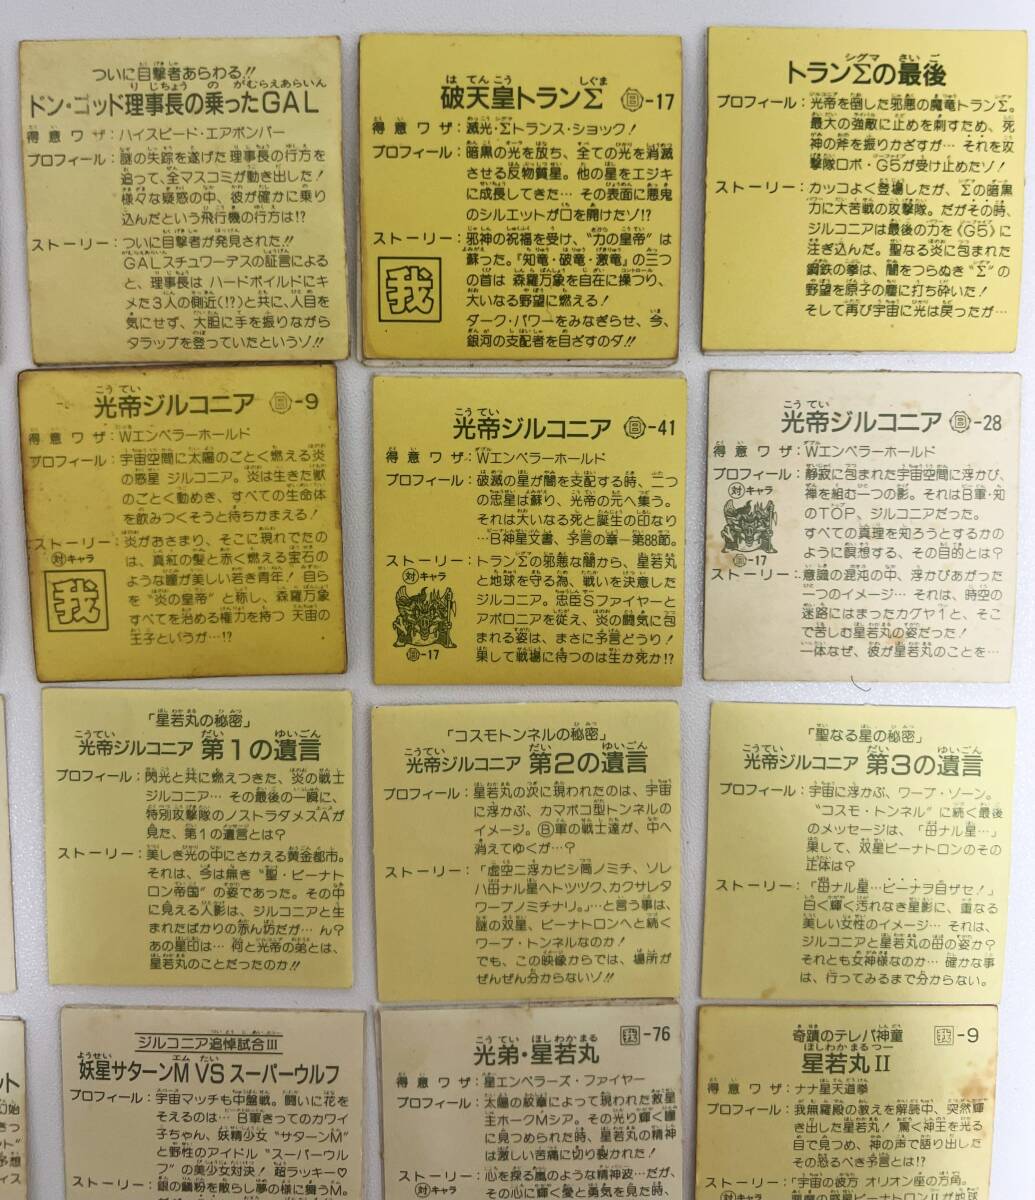 ついに目撃者あらわる!!
ドン・ゴッド理事長の乗ったGAL
得意ワザ:ハイスピード・エアボンバー
プロフィール:謎の失踪を遂げた理事長の行方を
追って、全マスコミが動き出した!
様々な疑惑の中、彼が確かに乗り
込んだという飛行機の行方は!?
ストーリー:ついに目撃者が発見された!!
GALスチュワーデスの証言による
と、理事長は ハードボイルドにキ
メた3人の側近(!?)と共に、人目を
気にせず、大胆に手を振りながら
タラップを登っていたというゾ!!
破天皇トランΣ B-17
得意ワザ:滅光・Σトランス・ショック!
プロフィール:暗黒の光を放ち、全ての光を消滅
させる反物質星。他の星をエジキ
に成長してきた… その表面に悪鬼
のシルエットが口を開けたゾ!?
ストーリー:邪神の祝福を受け、“力の皇帝”は
蘇った。「知竜・破竜・激竜」の三つ
の首は 森羅万象を自在に操つり、
大いなる野望に燃える!
ダーク・パワーをみなぎらせ、今、
銀河の支配者を目ざすのダ!!
我
トランΣの最後
プロフィール:光帝を倒した邪悪の魔竜トランΣ。
最大の強敵に止めを刺すため、死
神の斧を振りかざすが… それを攻
撃隊ロボ・G5が受け止めたゾ!
ストーリー:カッコよく登場したが、Σの暗黒
力に大苦戦の攻撃隊。だがその時、
ジルコニアは最後の力を《G5》に
注ぎ込んだ。聖なる炎に包まれた
鋼鉄の拳は、闇をつらぬき“Σ”の
野望を原子の塵に打ち砕いた!
そして再び宇宙に光は戻ったが…
光帝ジルコニア B-9
得意ワザ:Wエンペラーホールド
プロフィール:宇宙空間に太陽のごとく燃える炎
の惑星 ジルコニア。炎は生きた獣
のごとく動めき、すべての生命体
を飲みつくそうと待ちかまえる!
ストーリー:炎がおさまり、そこに現れでたの
は、真紅の髪と赤く燃える宝石の
ような瞳が美しい若き青年! 自ら
を“炎の皇帝”と称し、森羅万象
すべてを治める権力を持つ 天宙の
王子というが…!?
対キャラ
我
光帝ジルコニア B-41
得意ワザ:Wエンペラーホールド
プロフィール:破滅の星が闇を支配する時、二つ
の忠星は蘇り、光帝の元へ集う。
それは大いなる死と誕生の印なり
…B神星文書、予言の章―第88節。
ストーリー:トランΣの邪悪な闇から、星若丸
と地球を守る為、戦いを決意した
ジルコニア。忠臣Sファイヤーと
アポロニアを従え、炎の闘気に包
まれる姿は、まさに予言どうり!
果して戦場に待つのは生か死か!?
対キャラ
-17
光帝ジルコニア B-28
得意ワザ:Wエンペラーホールド
プロフィール:静寂に包まれた宇宙空間に浮かび、
禅を組む一つの影。それはB軍・知
のTOP、ジルコニアだった。
すべての真理を知ろうとするかの
ように瞑想する、その目的とは?
ストーリー:意識の混沌の中、浮かびあがった
二つのイメージ… それは、時空の
迷路にはまったカグヤ1と、そこ
で苦しむ星若丸の姿だった!
一体なぜ、彼が星若丸のことを…
対キャラ
-17
「星若丸の秘密」
光帝ジルコニア 第1の遺言
プロフィール:閃光と共に燃えつきた、炎の戦士
ジルコニア… その最後の一瞬に、
特別攻撃隊のノストラダメスAが
見た、第1の遺言とは?
ストーリー:美しき光の中にさかえる黄金都市。
それは、今は無き“聖・ビーナト
ロン帝国”の姿であった。その中
に見える人影は、ジルコニアと生
まれたばかりの赤ん坊だが… ん?
あの星印は… 何と光帝の弟とは、
星若丸のことだったのか!!
「コスモトンネルの秘密」
光帝ジルコニア 第2の遺言
プロフィール:星若丸の次に現われたのは、宇宙
に浮かぶ、カマボコ型トンネルの
イメージ。B軍の戦士達が、中へ
消えてゆくが…?
ストーリー:「虚空二浮カビシ筒ノミチ、ソレ
ハ母ナル星ヘトツヅク、カクサレタ
ワープノミチナリ。」…と言う事は、
謎の双星、ビーナトロンへと続く
ワープ・トンネルなのか!
でも、この映像からでは、場所が
ぜんぜん分からないゾ!!
「聖なる星の秘密」
光帝ジルコニア 第3の遺言
プロフィール:宇宙に浮かぶ、ワープ・ゾーン。
“コスモ・トンネル”に続く最後
のメッセージは、「母ナル星…」
果して、双星ビーナトロンのその
正体は?
ストーリー:「母ナル星…ビーナラ目ザセ!」
白く輝く汚れなき星影に、重なる
美しい女性のイメージ… それは、
ジルコニアと星若丸の母の姿か?
それとも女神様なのか… 確かな事
は、行ってみるまで分からない。
ジルコニア追悼試合III
妖星サターンM VS スーパーウルフ
プロフィール:宇宙マッチも中盤戦。闘いに花を
そえるのは… B軍きってのカワイ
子ちゃん、妖精少女“サターンM”
と野性のアイドル“スーパーウル
フ”の美少女対決! 超ラッキー♡
ストーリー:銀の鱗粉を散らし夢の様に舞うM。
光弟・星若丸 我-76
得意ワザ:星エンペラーズ・ファイヤー
プロフィール:太陽の紋章によって現われた救星
主ホークMシア。その光り輝く瞳
に見つめられた時、星若丸の精神
は激しい苦痛に切り裂かれた!
ストーリー:心を探る嵐のような精神波…だが、
その心に輝く愛と勇気を見た時、
対キャラ
奇蹟のテレパ神童 我-9
星若丸II
得意ワザ:ナナ星天道拳
プロフィール:我無羅殿の教えを解読中、突然輝
き出した星若丸! 驚く神王を光る
目で見つめ、神の声で語り出した
その恐るべき予言とは!?
ストーリー:「宇宙の彼方 オリオン座の方角。
対キャラ